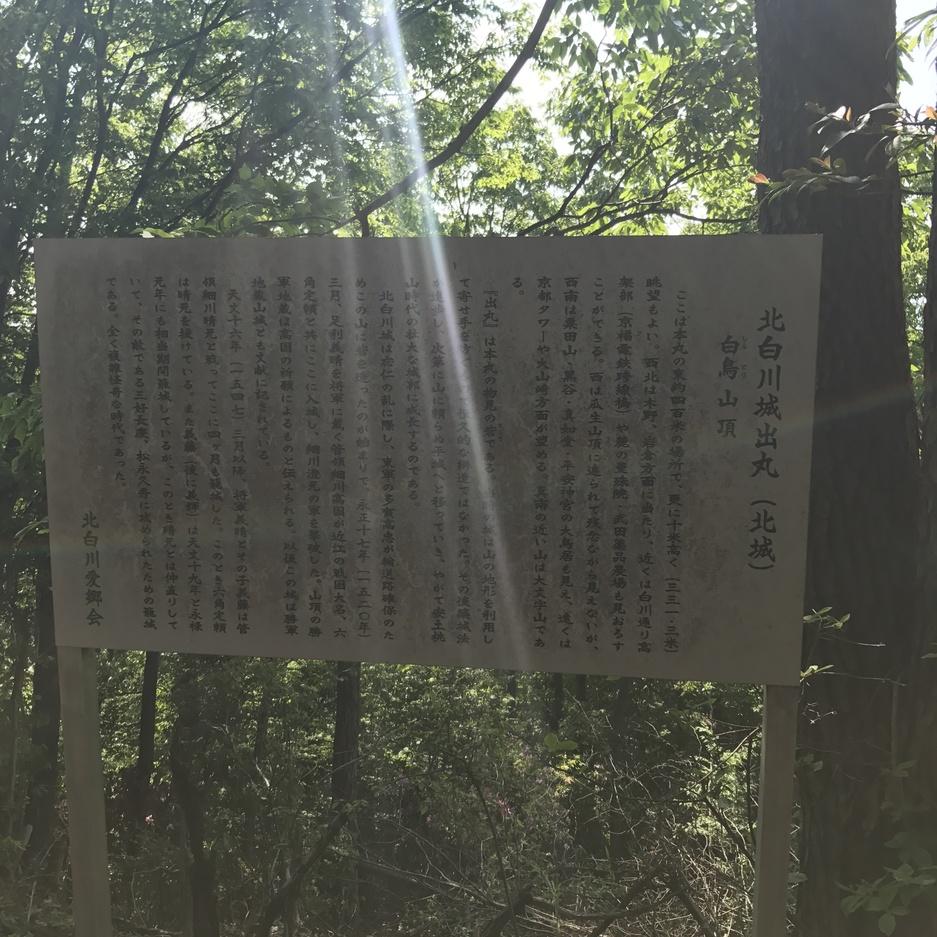 北白川城出丸（北城）
白鳥山頂
しら とり
ここは本丸の東約四百米の場所で、更に十米高く（三三一・三米）
眺望もよい。西北は木野、岩倉方面に当たり、近くは白川通り高
架部（京福電鉄跨線橋）や 曼殊院・武田薬品農場も見おろす
ことができる。西は瓜生山頂に遮られて残念ながら見えないが、
西南は栗田山・黒谷・真如堂・平安神宮の大鳥居も見え、遠くは
京都タワーや大山崎方面が望める。真南の近い山は大文字山であ
る。
『出丸』は本丸の物見の である。 は山の地形を利用し
て寄せ手を 永久的な構造ではなかった。その後築城法
が進歩し、次第に山に頼らぬ平城へと移っていき、やがて安土桃
山時代の壮大な城郭に成長するのである。
北白川城は応仁の乱に際し、東軍の多賀高忠が輸送路確保のた
めこの山に 造ったのが始まりで、永正十七年（一五二〇年）
三月、足利義晴を将軍に戴く管領細川高国が近江の戦国大名、六
角定頼と共にここに入城し、細川澄元の軍を撃破した。山頂の勝
軍地蔵は高国の祈願によるものと伝えられる。以後この城は勝軍
地蔵山城とも文献に記されている。
天文十六年（一五四七）三月以降、将軍義晴とその子義藤は管
領細川晴元と戦ってここに四ヶ月も籠城した。このとき六角定頼
は晴元を援けている。また義藤（後に義輝）は天文十九年と永禄
元年にも相当期間籠城しているが、このとき晴元とは仲直りして
いて、その敵である三好長慶、松永久秀に攻められたための籠城
である。全く複雑怪奇な時代であった。
北白川愛郷会